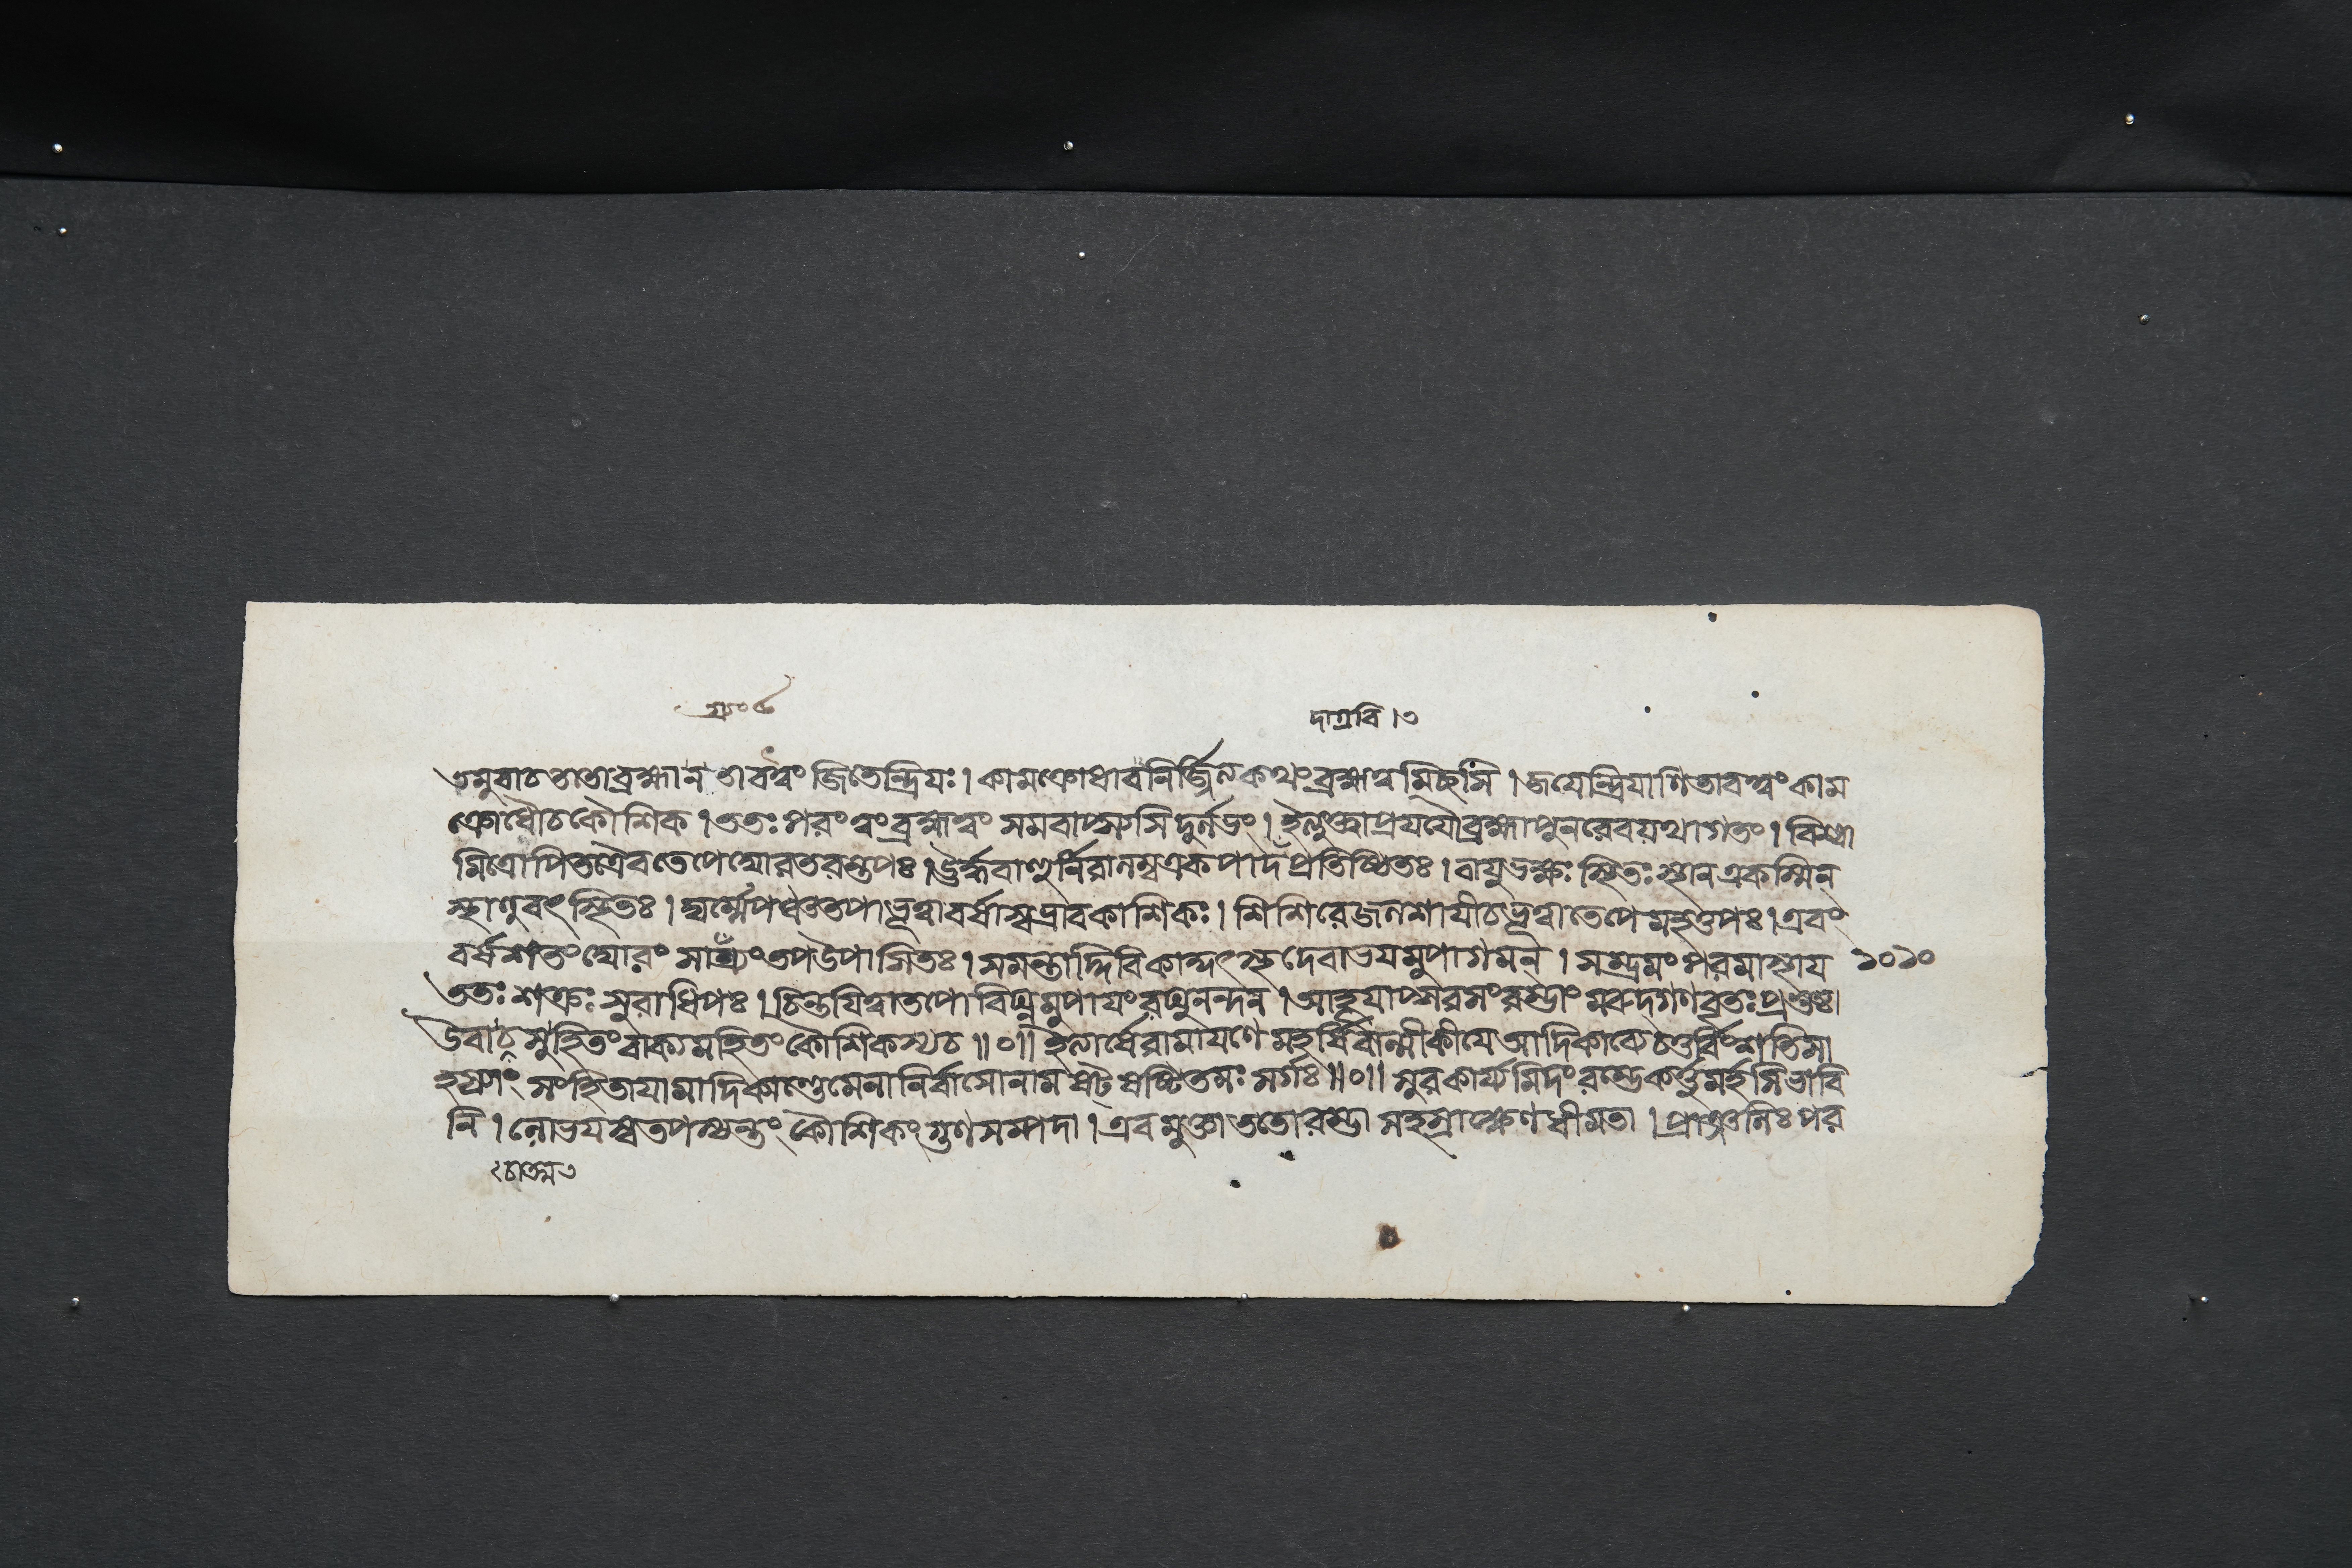 দাগ্রবি ।৩
তমুবাচ ততো ব্রহ্মা ন তাবত্ত্বং জিতেন্দ্রিয়ঃ । কামক্রোধাবনির্জ্জিত্য কথং ব্রহ্মত্বমিচ্ছসি । জয়েন্দ্রিয়াণি তাবত্ত্বং কাম
ক্রোধৌ চ কৌশিক । ততঃ পরং ত্বং ব্রহ্মত্বং সমবাপ্স্যসি দুর্লভং । ইত্যুক্ত্বা প্রযযৌ ব্রহ্মা পুনরেব যথাগতং । বিশ্বা
মিত্রোপি তত্রৈব তেপে ঘোরতরন্তপঃ । ঊর্দ্ধবাহুর্নিরালম্ব একপাদপ্রতিষ্ঠিতঃ । বায়ুভক্ষঃ স্থিতঃ স্থান একস্মিন্
স্থাণুবৎ স্থিতঃ । ঘর্ম্মে পঞ্চতপা ভূত্বা বর্ষাস্বভ্রাবকাশিকঃ । শিশিরে জলশায়ী চ ভূত্বা তেপে মহত্তপঃ । এবং
বর্ষশতং ঘোরং সাগ্র্যং তপ উপাসিতঃ । সমন্তাদ্দিবি কাকুৎস্থ দেবা ভয়মুপাগমন্ । সম্ভ্রমং পরমাস্থায় ১০১০
ততঃ শক্রঃ সুরাধিপঃ । চিন্তয়িত্বা তপোবিঘ্নমুপায়ং রঘুনন্দন । আহূয়াপ্সরসং রম্ভাং মরুদ্গণবৃতঃ প্রভুঃ ।
উবাচ সুহিতং বাক্যমহিতং কৌশিকস্য চ ॥০॥ ইত্যার্ষে রামায়ণে মহর্ষিবাল্মীকীয়ে আদিকাব্যে চতুর্বিংশতিসা
হস্র্যাং সংহিতায়ামাদিকাণ্ডে মেনানির্বাসো নাম পঞ্চষষ্টিতমঃ সর্গঃ ॥০॥ সুরকার্য্যমিদং রম্ভে কর্ত্তুমর্হসি ভাবি
নি । লোভয়স্ব তপস্যন্তং কৌশিকং গুণসম্পদা । এবমুক্তা ততো রম্ভা সহস্রাক্ষেণ ধীমতা । প্রাঞ্জলিঃ পর